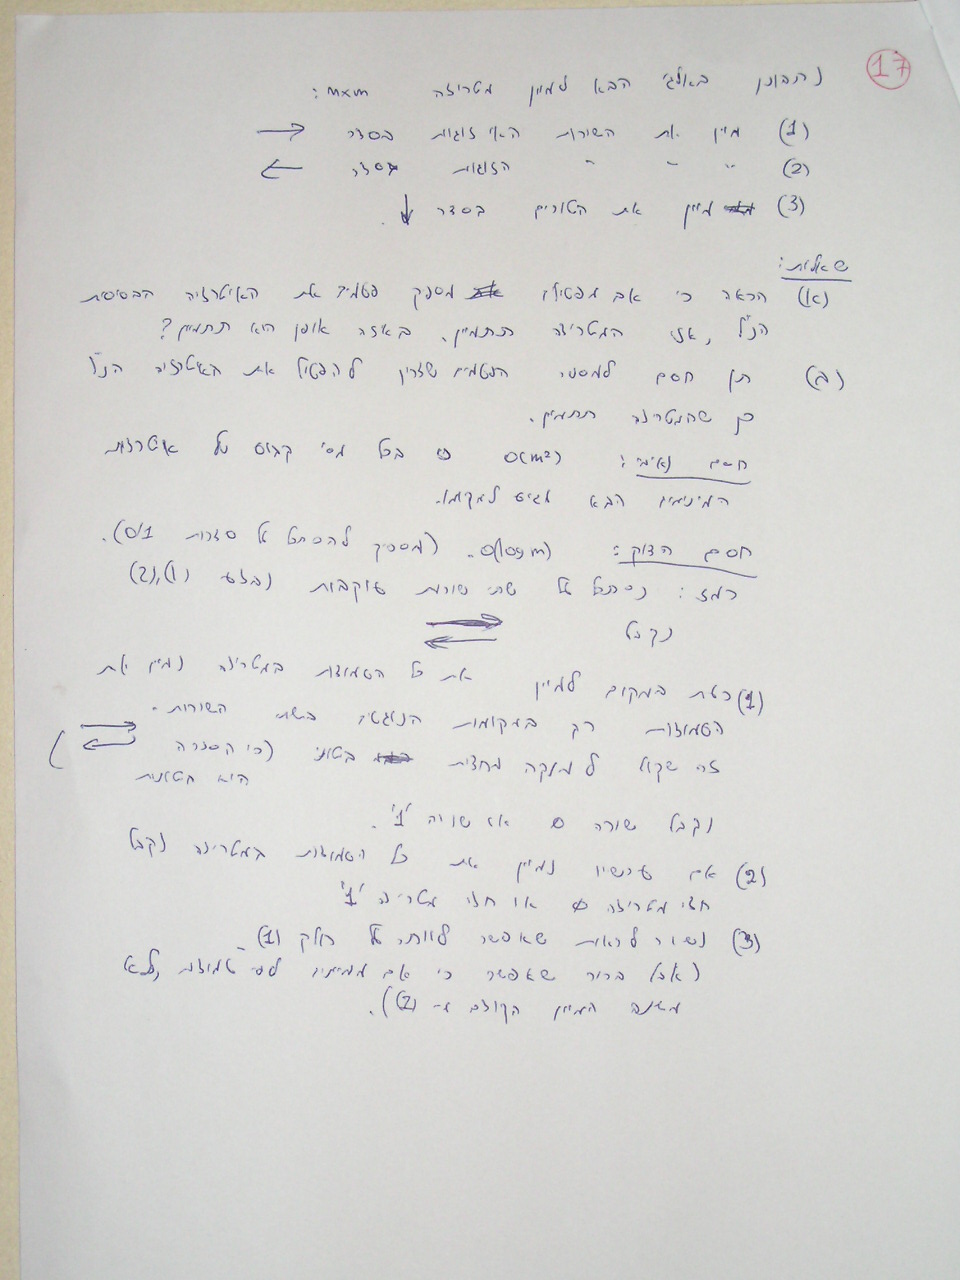 17
נתבונן באלג' הבא למיון מטריצה mxm:
(1) מיין את השורות האי זוגיות בסדר →
(2) " " " הזוגיות בסדר ←
(3) מיין את הטורים בסדר ↓.
שאלות:
(א) הראה כי אם מפעילים מספיק פעמים את האיטרציה הבסיסית
הנ"ל, אזי המטריצה תתמיין. באיזה אופן היא תתמיין?
(ב) תן חסם למספר הפעמים שצריך להפעיל את האיטרציה הנ"ל
כך שהמטריצה תתמיין.
חסם נאיבי: O(m²) כי בכל מס' קבוע של איטרציות
המינימום הבא מגיע למקומו.
חסם הדוק: O(log m). (מספיק להסתכל על סדרות 0/1).
רמז: נסתכל על שתי שורות עוקבות (בצעד (1),(2))
נקבל
(1) כעת במקום למיין את כל העמודות במטריצה נמיין את
העמודות רק במקומות בשתי השורות.
זה שקול למנקה מחצית (כי הסדרה
היא ביטונית)
נקבל שורה 0 או שורה '1'.
(2) אם עכשיו נמיין את כל העמודות במטריצה נקבל
חצי מטריצה 0 או חצי מטריצה '1'
(3) נשאר לראות שאפשר לוותר על חלק (1)
(אבל ברור שאפשר כי אם ממיינים לפי עמודות, לא
משנה המיון הקודם מ-(2)).